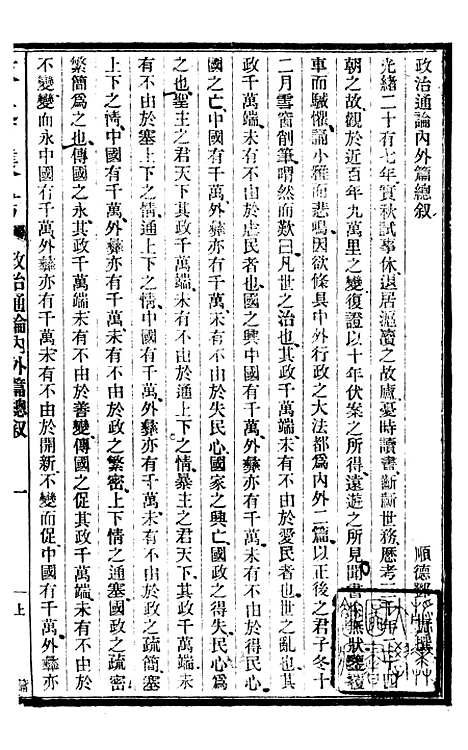 政治通論內外篇總敘
順德鄧
光緒二十有七年實秋試事休退居滬瀆之故廬憂時讀書斷斷世務歷考三千年
朝之故觀於近百年九萬里之變復證以十年伏案之所得遠遊之所見聞書
車而駴懼誦小雅而悲鳴因欲條具中外行政之大法都為內外二篇以正後之君子冬十
二月雲窗創筆喟然而歎曰凡世之治也其政千萬端未有不由於愛民者也世之亂也其
政千萬端未有不由於虐民者也國之興中國有千萬外彝亦有千萬未有不由於得民心
國之亡中國有千萬外彝亦有千萬未有不由於失民心國家之興亡國政之得失民心爲
之也聖主之君天下其政千萬端未有不由於通上下之情暴主之君天下其政千萬端未
有不由於塞上下之情通上下之情中國有千萬外彝亦有千萬未有不由於政之疏簡塞
上下之情中國有千萬外彝亦有千萬未有不由於政之繁密上下情之通塞國之政之疏密
繁簡爲之也傳國之永其政千萬端未有不由於善變傳國之促其政千萬端未有不由於
不變變而永中國有千萬外彝亦有千萬未有不由於開新不變而促中國有千萬外彝亦
政治通論內外篇總敘
一
上